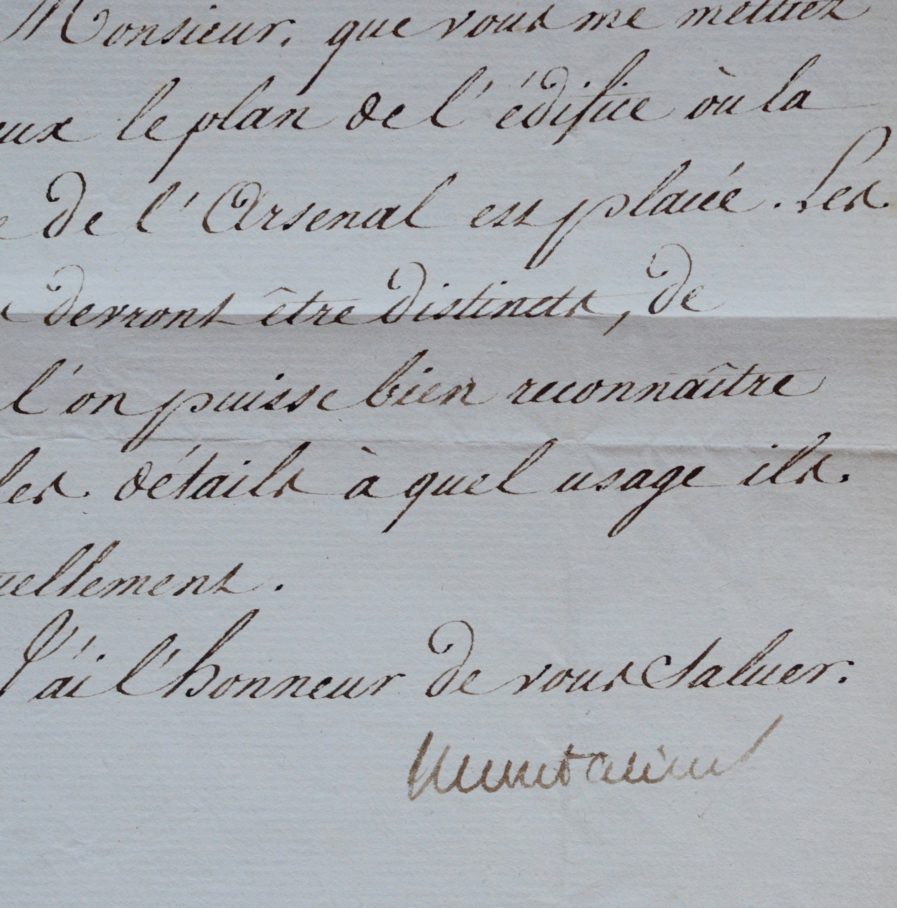 Monsieur, que vous me mettiez
le plan de l'édifice où la
de l'Arsenal est placée. Les
devront être distincts, de
l'on puisse bien reconnaître
les détails à quel usage ils
uellement.
J'ai l'honneur de vous Saluer.